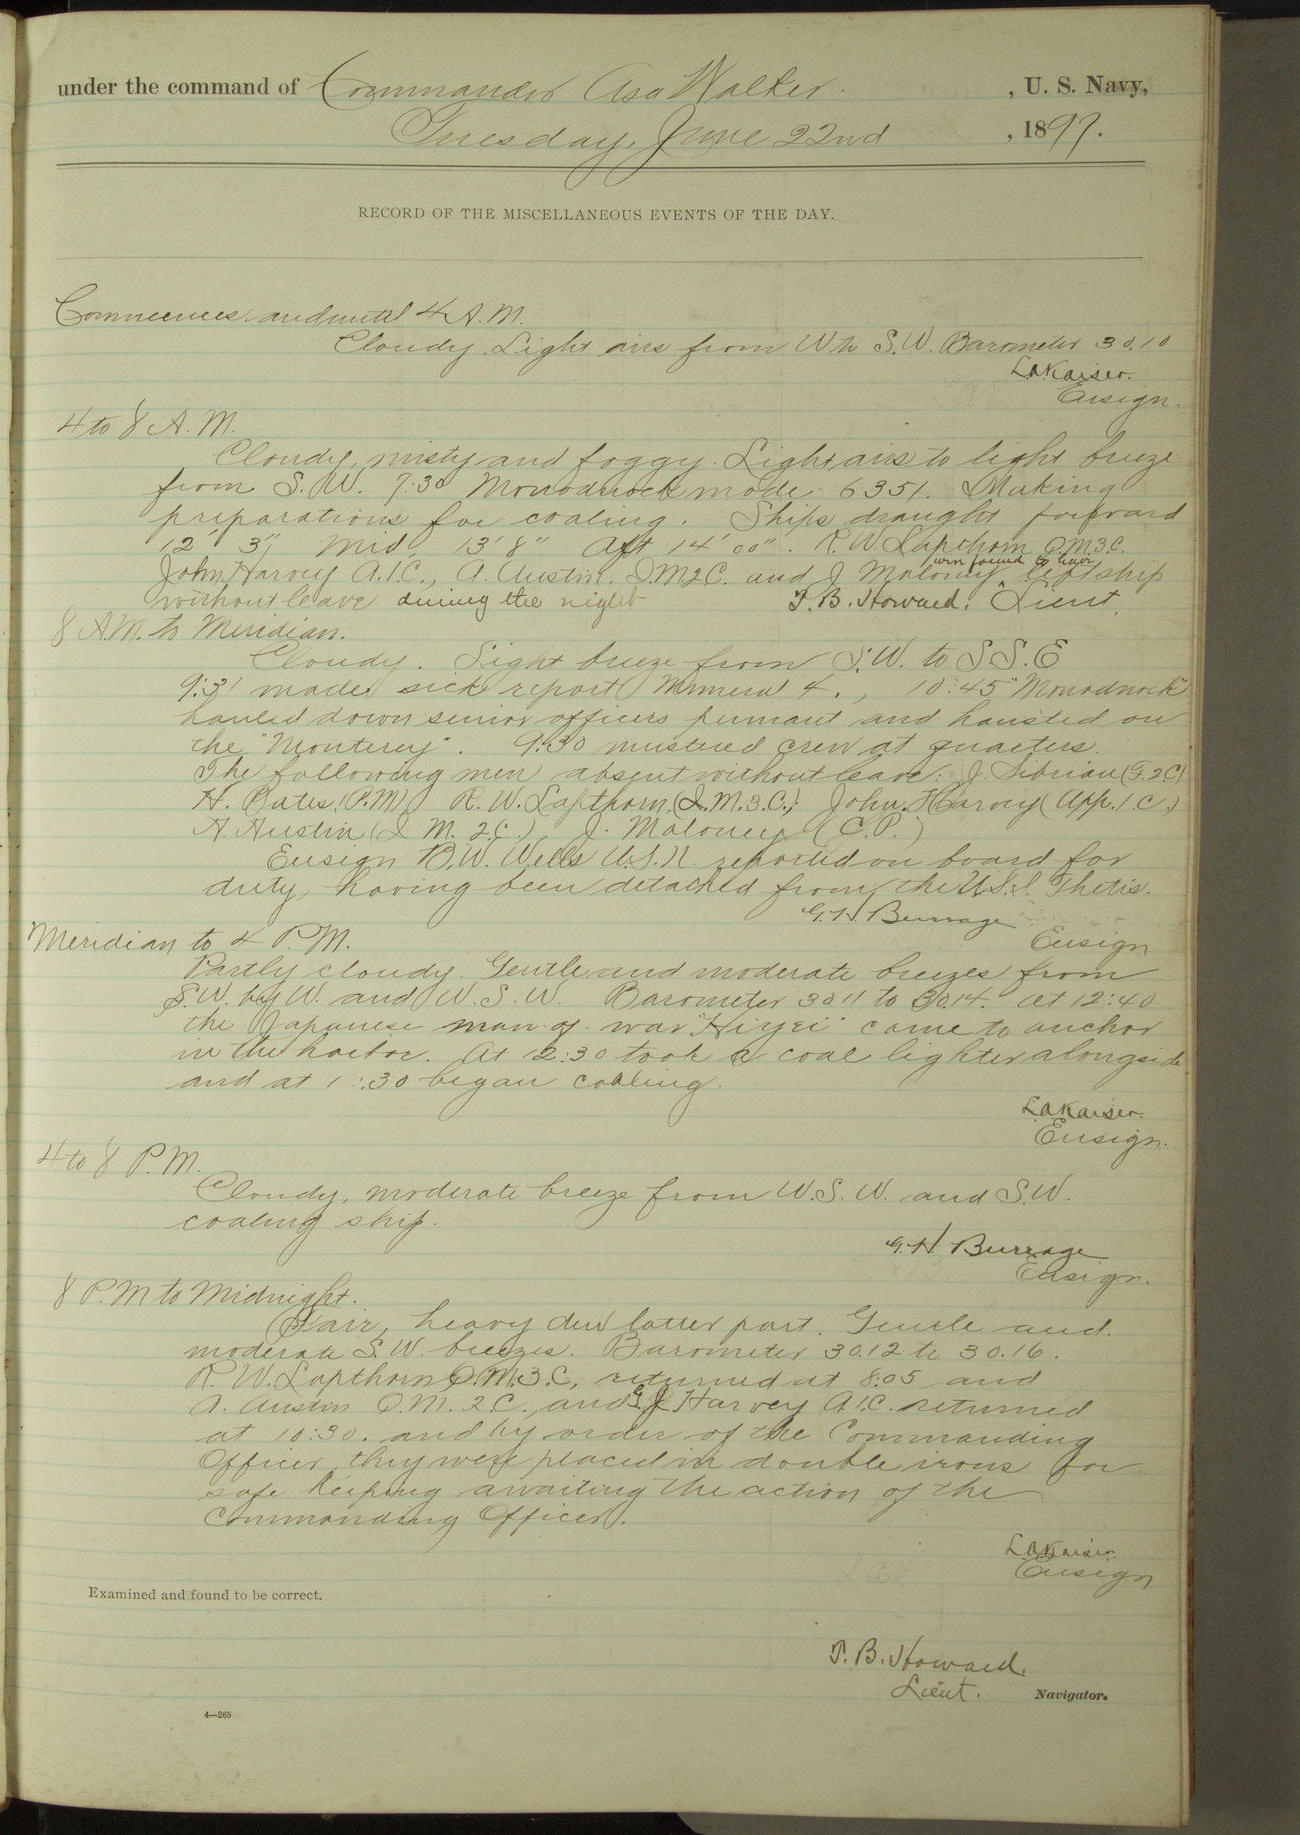 under the command of Commander Asa Walker. , U. S. Navy,
Tuesday, June 22nd , 1897.
RECORD OF THE MISCELLANEOUS EVENTS OF THE DAY.
Commences and until 4 A.M.
Cloudy. Light airs from W to S.W. Barometer 30.10
L.A. Kaiser.
Ensign.
4 to 8 A.M.
Cloudy, misty and foggy. Light airs to light breeze
from S.W. 7:30 Monadnock made 6351. Making
preparations for coaling. Ships draught forward
12' 3", Mid. 13' 8" Aft 14' 00". R.W. Lapthorn Q.M.3.C.
were found to have
John Harvey A.1.C., A. Austin Q.M.2C. and J Maloney ^ left ship
without leave during the night T. B. Howard. Lieut.
8 A.M. to Meridian.
Cloudy. Light breeze from S.W. to S S.E
9:31 made sick report numeral 4., 10:45 "Monadnock"
hauled down senior officers pennant and hoisted on
the "Monterey". 9:30 mustered crew at quarters.
The following men absent without leave: J. Sibrian (F.2C)
H. Bates (P.M) R. W. Lapthorn, (Q.M.3.C.), John. Harvey (App. 1 C.)
A. Austin (Q M. 2.C.), J. Maloney (C.P.)
Ensign B.W. Wells U.S.N. reported on board for
duty, having been detached from the U.S.S. Thetis.
G.H Burrage
Ensign
Meridian to 4 P.M.
Partly cloudy. Gentle and moderate breezes from
S.W. by W. and W.S.W. Barometer 30.11 to 30.14. At 12:40
the Japanese man of war "Hiyei" came to anchor
in the harbor. At 12:30 took a coal lighter alongside
and at 1:30 began coaling.
L.A. Kaiser.
Ensign.
4 to 8 P.M.
Cloudy, moderate breeze from W.S.W. and S.W.
coaling ship.
G.H Burrage
Ensign.
8 P.M to Midnight.
Fair, heavy dew latter part. Gentle and
moderate S.W. breezes. Barometer 30.12 to 30.16.
R. W. Lapthorn Q.M.3.C, returned at 8:05 and
A. Austin Q.M. 2.C., and J Harvey A.1.C. returned
at 10:30. and by order of the Commanding
Officer they were placed in double irons for
safe keeping awaiting the action of the
Commanding Officer.
L.A. Kaiser.
Ensign
Examined and found to be correct.
T. B. Howard.
Lieut. Navigator.
4—265